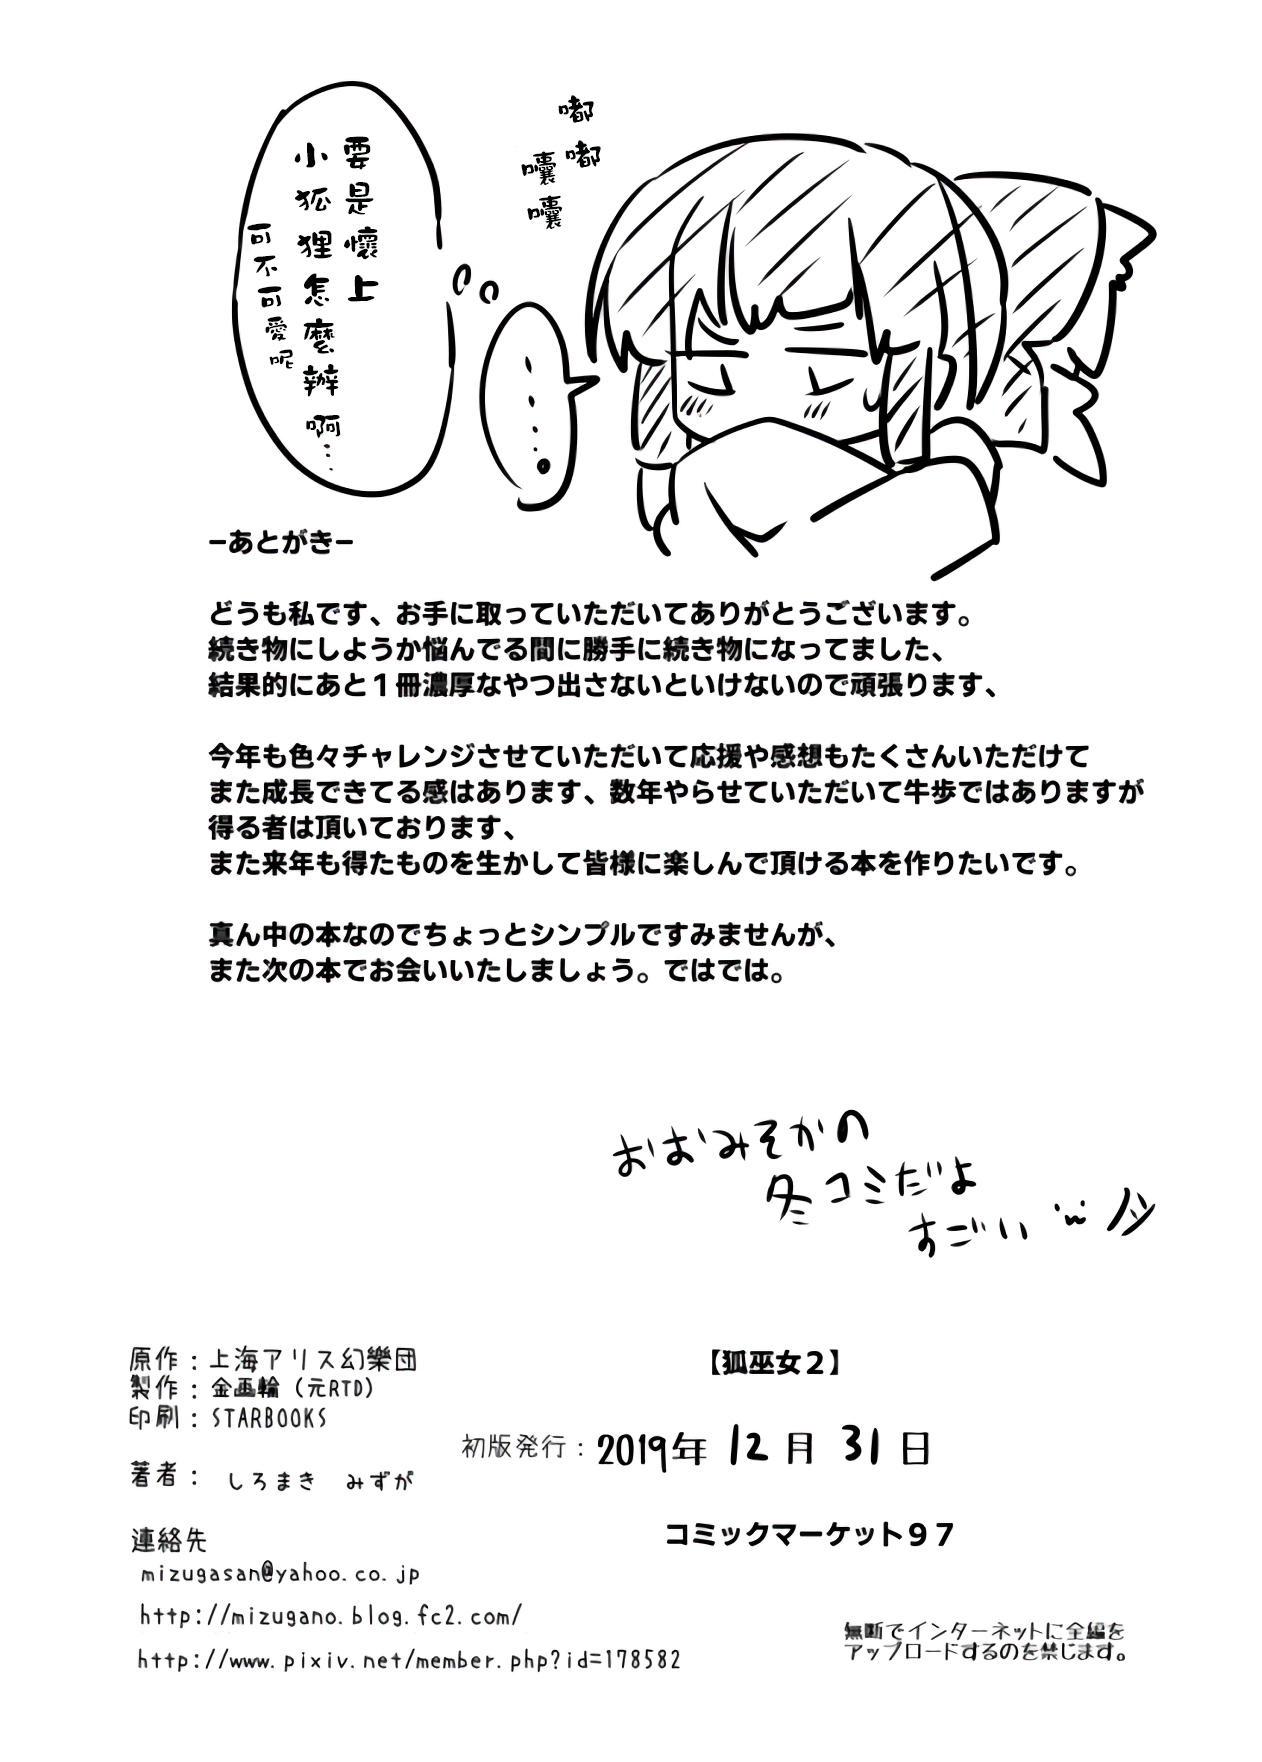 嘟嘟
囔囔
要是懷上
小狐狸怎麼辦啊…
可不可愛呢
……
ーあとがきー
どうも私です、お手に取っていただいてありがとうございます。
続き物にしようか悩んでる間に勝手に続き物になってました、
結果的にあと１冊濃厚なやつ出さないといけないので頑張ります、
今年も色々チャレンジさせていただいて応援や感想もたくさんいただけて
また成長できてる感はあります、数年やらせていただいて牛歩ではありますが
得る者は頂いております、
また来年も得たものを生かして皆様に楽しんで頂ける本を作りたいです。
真ん中の本なのでちょっとシンプルですみませんが、
また次の本でお会いいたしましょう。ではでは。
おおみそかの
冬コミだよ
すごい
原作：上海アリス幻樂団
製作：金画輪（元RTD）
印刷：STARBOOKS
著者： しろまき みずが
連絡先
mizugasan@yahoo.co.jp
http://mizugano.blog.fc2.com/
http://www.pixiv.net/member.php?id=178582
【狐巫女２】
初版発行：2019年 12月 31日
コミックマーケット９７
無断でインターネットに全編を
アップロードするのを禁じます。